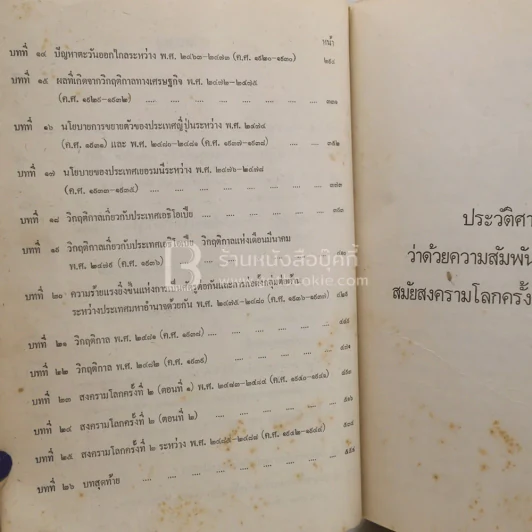 หน้า
บทที่ ๑๔ ปัญหาตะวันออกไกลระหว่าง พ.ศ. ๒๔๖๓-๒๔๗๓ (ค.ศ. ๑๙๒๐-๑๙๓๐)
บทที่ ๑๕ ผลที่เกิดจากวิกฤติกาลทางเศรษฐกิจ พ.ศ. ๒๔๗๒-๒๔๗๕
(ค.ศ. ๑๙๒๙-๑๙๓๒) .... .... .... .... .... ....
บทที่ ๑๖ นโยบายการขยายตัวของประเทศญี่ปุ่นระหว่าง พ.ศ. ๒๔๗๔
(ค.ศ. ๑๙๓๑) และ พ.ศ. ๒๔๘๐-๒๔๘๑ (ค.ศ. ๑๙๓๗-๑๙๓๘) .... ๓๕๒
บทที่ ๑๗ นโยบายของประเทศเยอรมนีระหว่าง พ.ศ. ๒๔๗๖-๒๔๗๘
(ค.ศ. ๑๙๓๓-๑๙๓๕) .... .... .... .... .... ....
บทที่ ๑๘ วิกฤติกาลเกี่ยวกับประเทศเอธิโอเปีย .... .... .... ....
บทที่ ๑๙ วิกฤติกาลเกี่ยวกับประเทศเอธิโอเปีย วิกฤติกาลแห่งเดือนมีนาคม
พ.ศ. ๒๔๗๙ (ค.ศ. ๑๙๓๖) .... .... .... ....
ร้านหนังสือบุ๊คกี้
บทที่ ๒๐ ความร้ายแรงยิ่งขึ้นแห่งการ
ระหว่างประเทศมหาอำนาจด้วยกัน พ.ศ. ๒๔๗๙-๒๔๘๐ (ค.ศ. ๑๙๓๖-๑๙๓๗)
บทที่ ๒๑ วิกฤติกาล พ.ศ. ๒๔๘๑ (ค.ศ. ๑๙๓๘) .... .... ....
บทที่ ๒๒ วิกฤติกาล พ.ศ. ๒๔๘๒ (ค.ศ. ๑๙๓๙) .... .... ....
บทที่ ๒๓ สงครามโลกครั้งที่ ๒ (ตอนที่ ๑) พ.ศ. ๒๔๘๓-๒๔๘๔ (ค.ศ. ๑๙๔๐-๑๙๔๑)
บทที่ ๒๔ สงครามโลกครั้งที่ ๒ (ตอนที่ ๒) .... .... .... ....
บทที่ ๒๕ สงครามโลกครั้งที่ ๒ ระหว่าง พ.ศ. ๒๔๘๕-๒๔๘๗ (ค.ศ. ๑๙๔๒-๑๙๔๔)
บทที่ ๒๖ บทสุดท้าย .... .... .... .... .... ....
ประวัติศา
ว่าด้วยความสัมพัน
สมัยสงครามโลกครั้ง